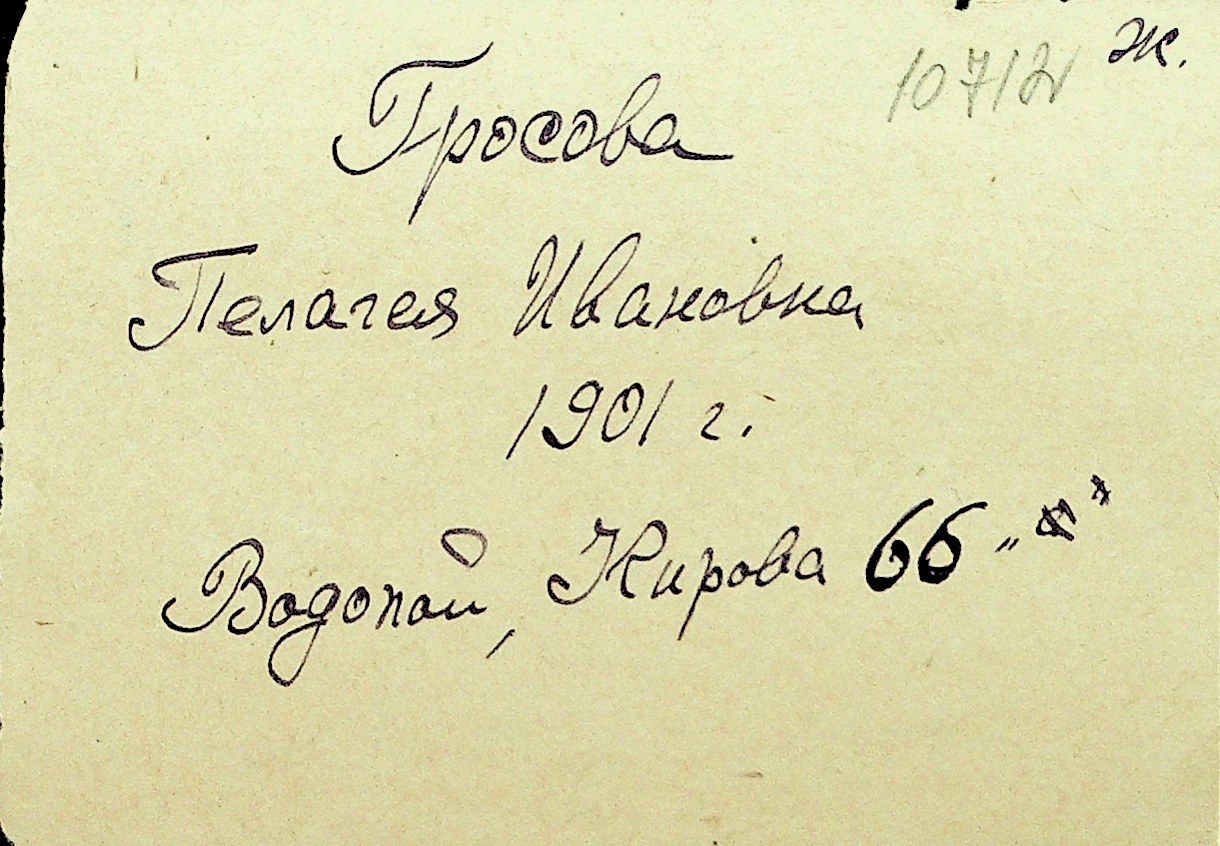 ж.
Гросова
Пелагея Ивановна
1901 г.
Водопой, Кирова 66 „а"